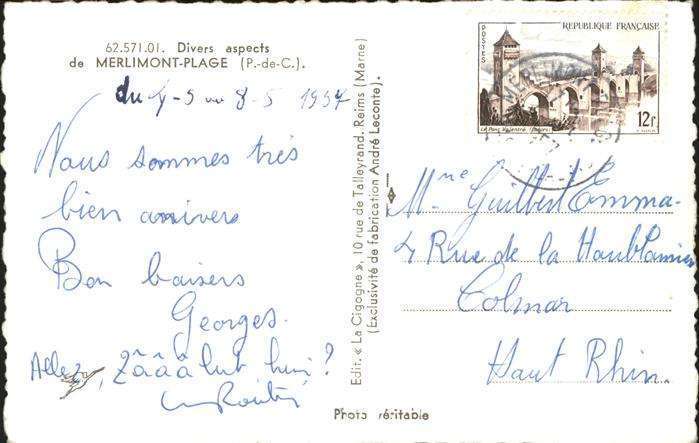 62.571.01. Divers aspects
de MERLIMONT-PLAGE (P.-de-C.).
du 4-5 au 8-5 1957
Nous sommes très
bien arrivers
Bon baisers
Georges.
Allez, zâââlut hein ?
Edit. « La Cigogne », 10 rue de Talleyrand. Reims (Marne)
(Exclusivité de fabrication André Leconte).
REPUBLIQUE FRANÇAISE
POSTES
Le Pont Valentré (Cahors)
12f
Mme Guilbert Emma
4 Rue de la
Colmar
Haut Rhin.
Photo véritable